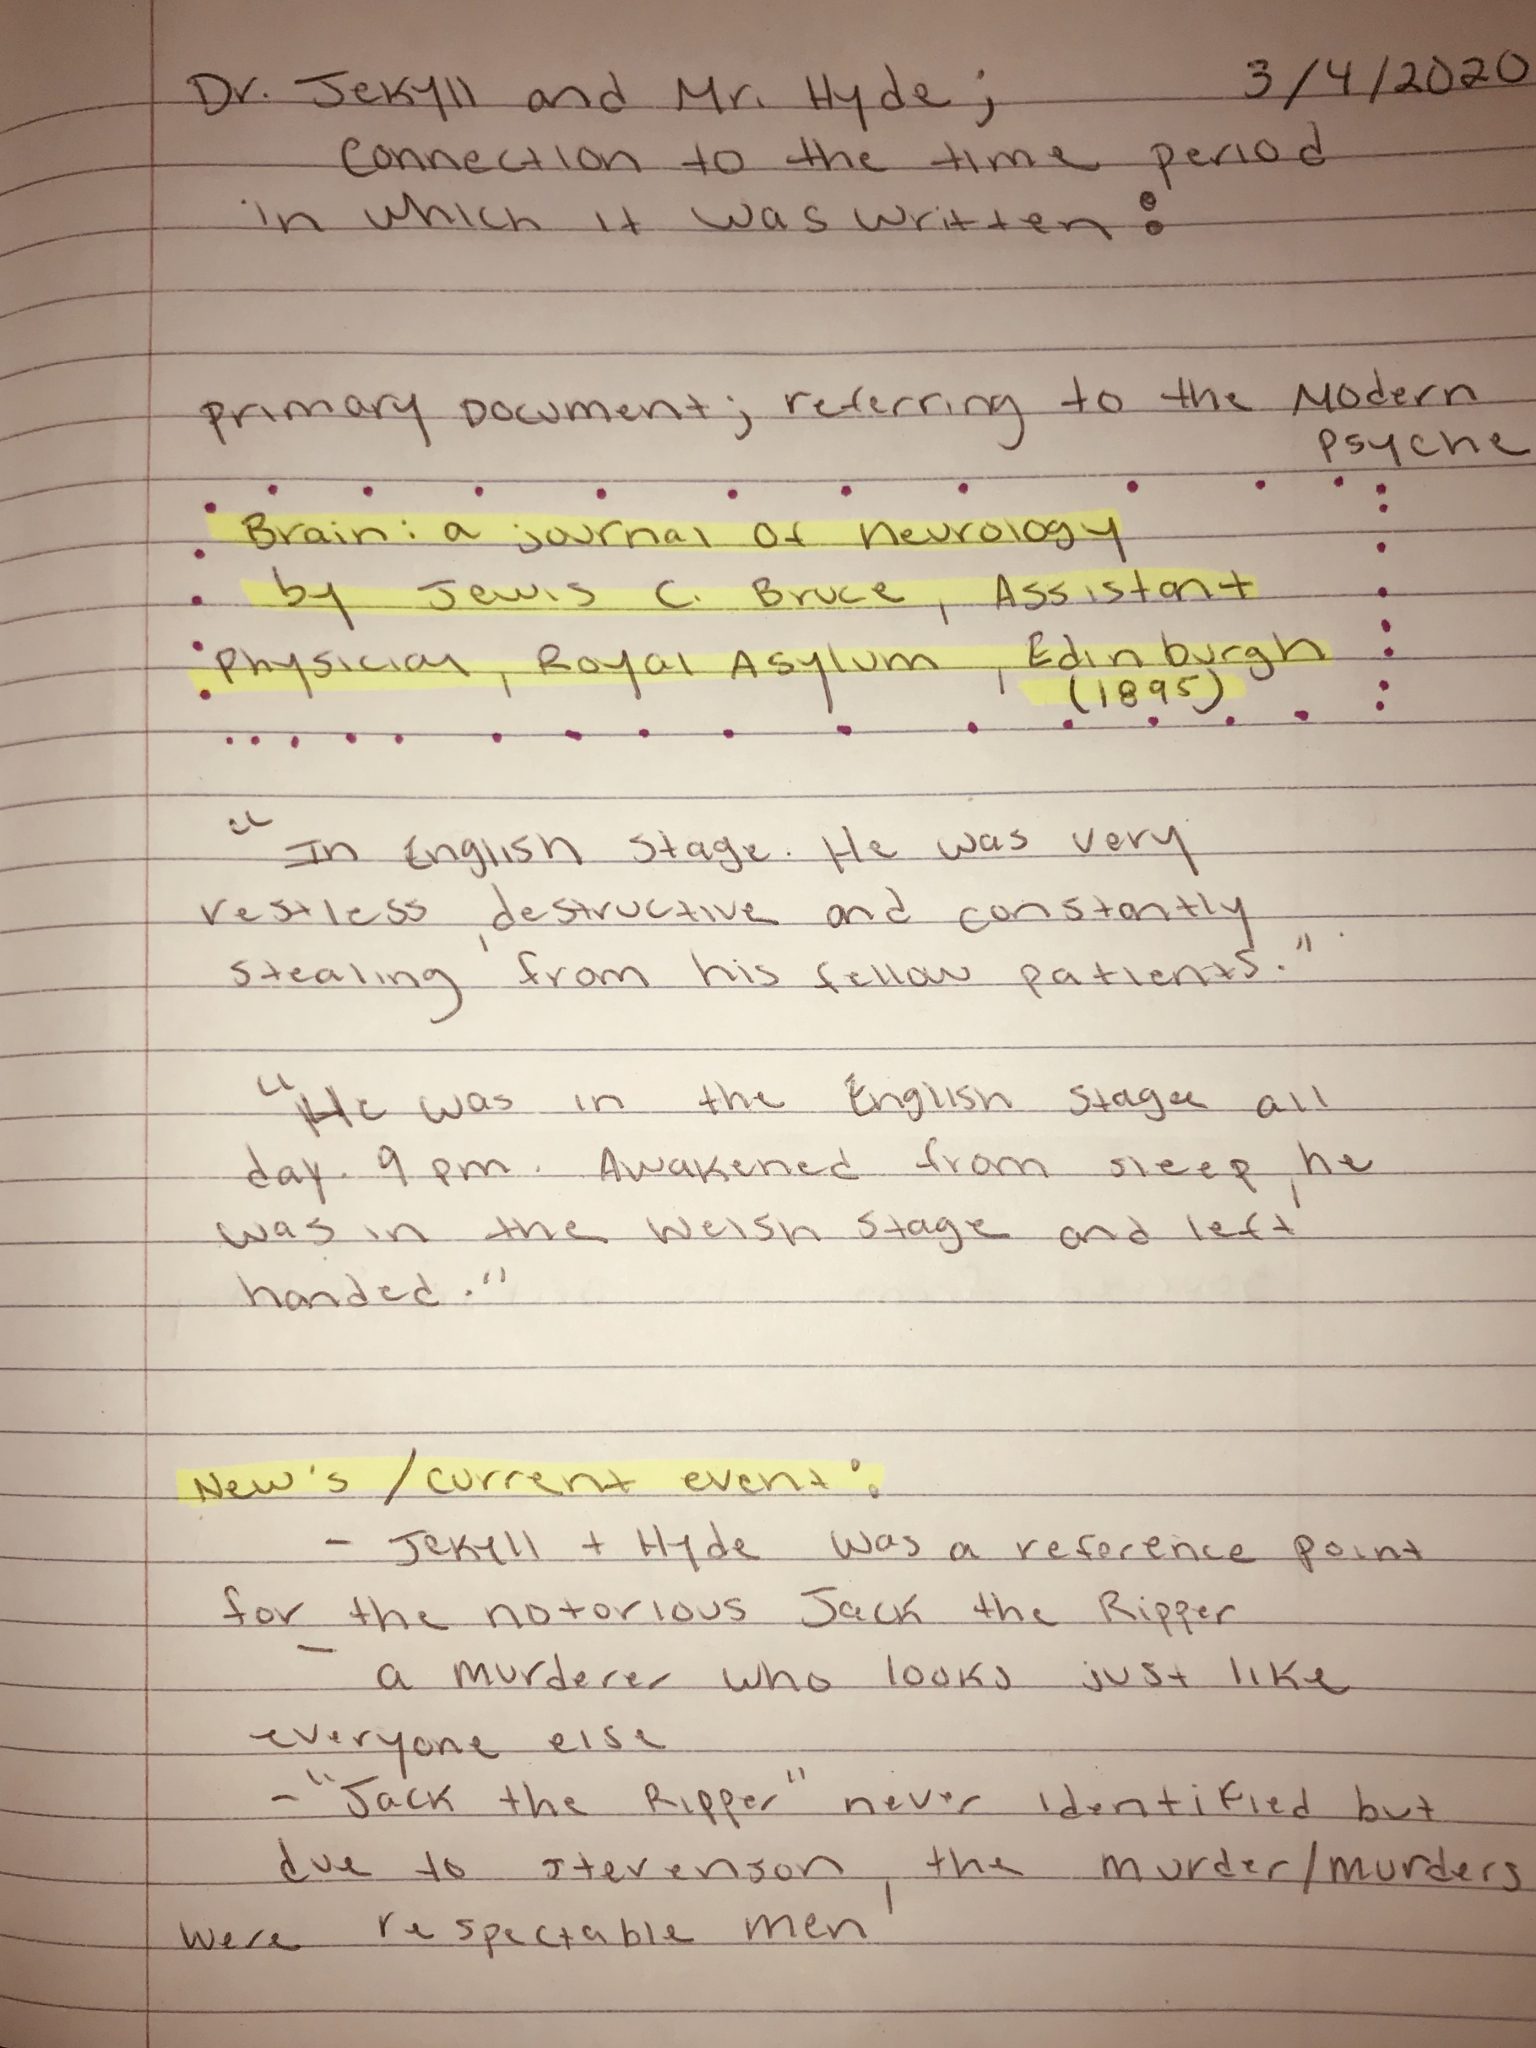 Dr. Jekyll and Mr. Hyde; 3/4/2020
Connection to the time period
in which it was written:
primary Document; referring to the Modern
Psyche
Brain: a journal of Neurology
by Jewis C. Bruce, Assistant
Physician, Royal Asylum, Edinburgh
(1895)
"In English Stage. He was very
restless, destructive and constantly
stealing from his fellow patients."
"He was in the English Stage all
day. 9 pm. Awakened from sleep, he
was in the Welsh Stage and left
handed."
New's / current event:
- Jekyll + Hyde was a reference point
for the notorious Jack the Ripper
- a murderer who looks just like
everyone else
- "Jack the Ripper" never identified but
due to Stevenson, the murder/murders
were respectable men